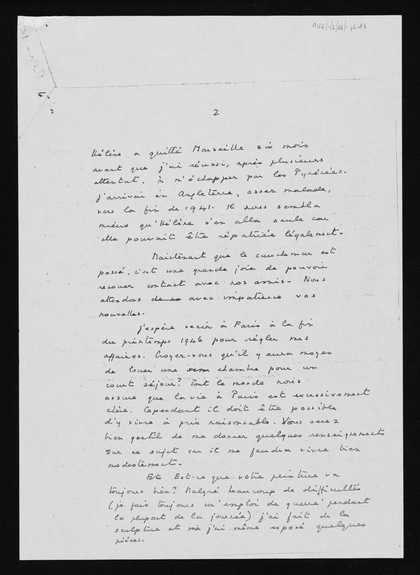 2
Hélène a quitté Marseille six mois
avant que j'ai réussi, après plusieurs
attentat, à m'échapper par les Pyrénées.
J'arrivai en Angleterre, assez malade,
vers la fin de 1941. Il nous sembla
mieux qu'Hélène s'en alla seule car
elle pouvait être répatriée légalement.
Maintenant que le cauchemar est
passé, c'est une grande joie de pouvoir
renouer contact avec nos amis. Nous
attendons avec impatience vos
nouvelles.
J'espère venir à Paris à la fin
du printemps 1946 pour régler mes
affaires. Croyez-vous qu'il y aura moyen
de louer une chambre pour un
court séjour? Tout le monde nous
assure que la vie à Paris est excessivement
chère. Cependant il doit être possible
d'y vivre à prix raisonnable. Vous serez
bien gentil de me donner quelques renseignements
sur ce sujet car il me faudra vivre bien
modestement.
Est-ce que votre peinture va
toujours bien? Malgré beaucoup de difficultés
(je fais toujours un emploi de guerre pendant
la plupart de la journée) j'ai fait de la
sculpture et j'ai même exposé quelques
pièces.